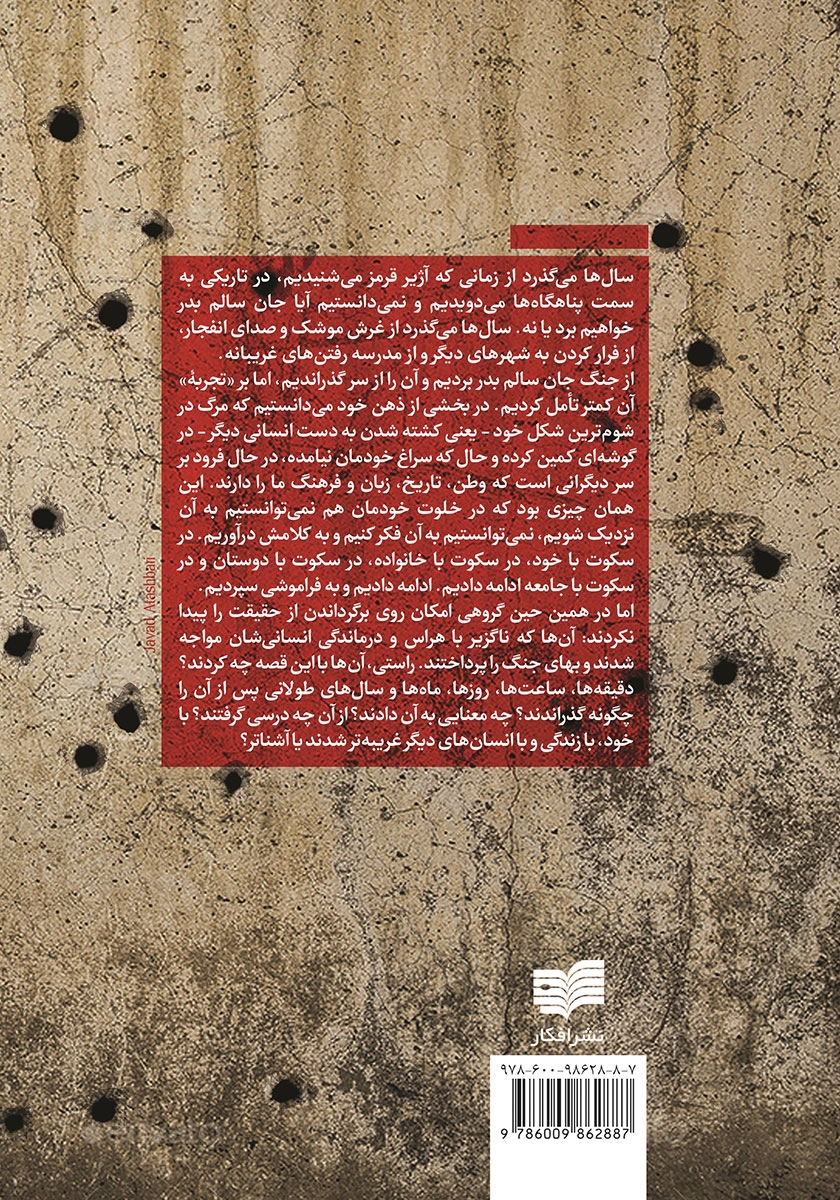 سال‌ها می‌گذرد از زمانی که آژیر قرمز می‌شنیدیم، در تاریکی به
سمت پناهگاه‌ها می‌دویدیم و نمی‌دانستیم آیا جان سالم بدر
خواهیم برد یا نه. سال‌ها می‌گذرد از غرش موشک و صدای انفجار،
از فرار کردن به شهرهای دیگر و از مدرسه رفتن‌های غریبانه.
از جنگ جان سالم بدر بردیم و آن را از سر گذراندیم، اما بر «تجربهٔ»
آن کمتر تأمل کردیم. در بخشی از ذهن خود می‌دانستیم که مرگ در
شوم‌ترین شکل خود - یعنی کشته شدن به دست انسانی دیگر - در
گوشه‌ای کمین کرده و حال که سراغ خودمان نیامده، در حال فرود بر
سر دیگرانی است که وطن، تاریخ، زبان و فرهنگ ما را دارند. این
همان چیزی بود که در خلوت خودمان هم نمی‌توانستیم به آن
نزدیک شویم، نمی‌توانستیم به آن فکر کنیم و به کلامش درآوریم. در
سکوت با خود، در سکوت با خانواده، در سکوت با دوستان و در
سکوت با جامعه ادامه دادیم. ادامه دادیم و به فراموشی سپردیم.
اما در همین حین گروهی امکان روی برگرداندن از حقیقت را پیدا
نکردند: آن‌ها که ناگزیر با هراس و درماندگی انسانی‌شان مواجه
شدند و بهای جنگ را پرداختند. راستی، آن‌ها با این قصه چه کردند؟
دقیقه‌ها، ساعت‌ها، روزها، ماه‌ها و سال‌های طولانی پس از آن را
چگونه گذراندند؟ چه معنایی به آن دادند؟ از آن چه درسی گرفتند؟ با
خود، با زندگی و با انسان‌های دیگر غریبه‌تر شدند یا آشناتر؟
Javad Atashbari
نشر افکار
۹۷۸-۶۰۰-۹۸۶۲۸-۸-۷
9 786009 862887